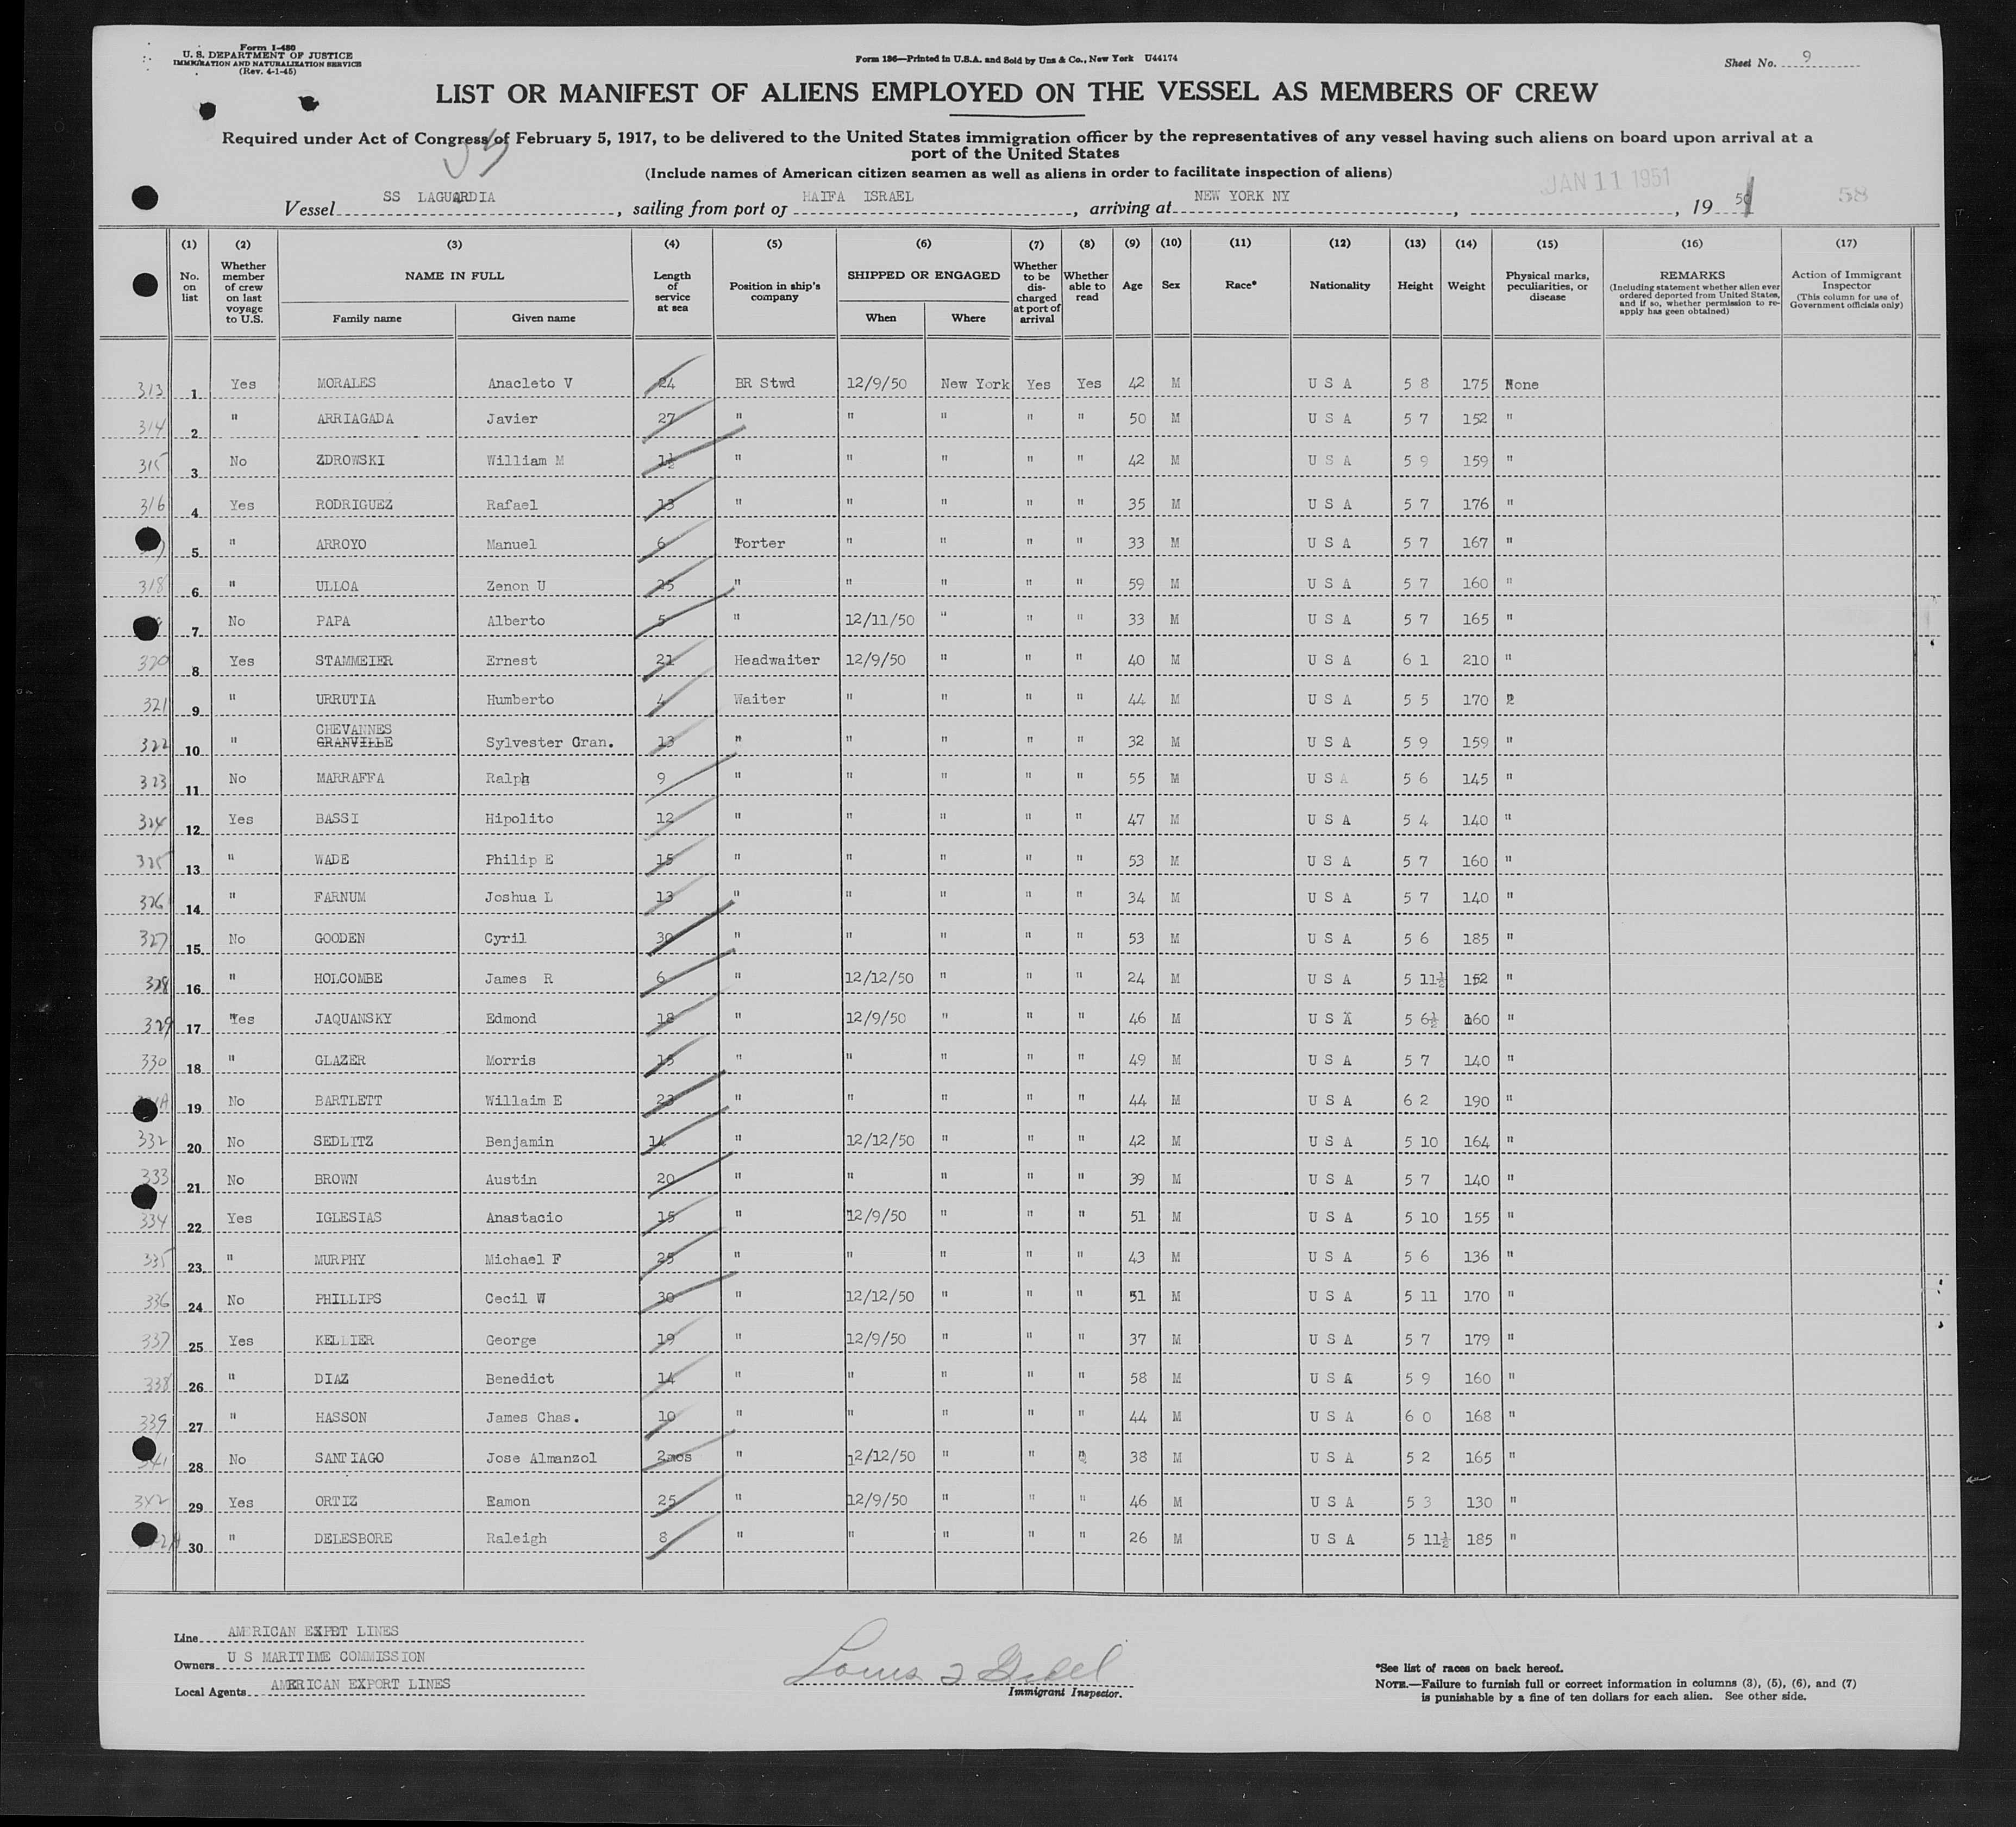 Form I-480
U. S. DEPARTMENT OF JUSTICE
IMMIGRATION AND NATURALIZATION SERVICE
(Rev. 4-1-45)
Form 186—Printed in U.S.A. and Sold by Unz & Co., New York U44174
Sheet No. 9
LIST OR MANIFEST OF ALIENS EMPLOYED ON THE VESSEL AS MEMBERS OF CREW
Required under Act of Congress of February 5, 1917, to be delivered to the United States immigration officer by the representatives of any vessel having such aliens on board upon arrival at a
port of the United States
(Include names of American citizen seamen as well as aliens in order to facilitate inspection of aliens)
JAN 11 1951
Vessel SS LAGUARDIA, sailing from port of HAIFA ISRAEL, arriving at NEW YORK NY, 19 51 58
(1) (2) (3) (4) (5) (6) (7) (8) (9) (10) (11) (12) (13) (14) (15) (16) (17)
No. on list
Whether member of crew on last voyage to U.S.
NAME IN FULL
Family name Given name
Length of service at sea
Position in ship's company
SHIPPED OR ENGAGED
When Where
Whether to be discharged at port of arrival
Whether able to read
Age
Sex
Race*
Nationality
Height
Weight
Physical marks, peculiarities, or disease
REMARKS
(Including statement whether alien ever ordered deported from United States, and if so, whether permission to re-apply has geen obtained)
Action of Immigrant Inspector
(This column for use of Government officials only)
313 1 Yes MORALES Anacleto V 24 BR Stwd 12/9/50 New York Yes Yes 42 M U S A 5 8 175 None
314 2 " ARRIAGADA Javier 27 " " " " " 50 M U S A 5 7 152 "
315 3 No ZDROWSKI William M 1½ " " " " " 42 M U S A 5 9 159 "
316 4 Yes RODRIGUEZ Rafael 13 " " " " " 35 M U S A 5 7 176 "
5 " ARROYO Manuel 6 Porter " " " " 33 M U S A 5 7 167 "
318 6 " ULLOA Zenon U 25 " " " " " 59 M U S A 5 7 160 "
7 No PAPA Alberto 5 " 12/11/50 " " " 33 M U S A 5 7 165 "
320 8 Yes STAMMEIER Ernest 21 Headwaiter 12/9/50 " " " 40 M U S A 6 1 210 "
321 9 " URRUTIA Humberto 4 Waiter " " " " 44 M U S A 5 5 170 "
CHEVANNES
322 10 " GRANVILLE Sylvester Gran. 13 " " " " " 32 M U S A 5 9 159 "
323 11 No MARRAFFA Ralph 9 " " " " " 55 M U S A 5 6 145 "
324 12 Yes BASSI Hipolito 12 " " " " " 47 M U S A 5 4 140 "
325 13 " WADE Philip E 15 " " " " " 53 M U S A 5 7 160 "
326 14 " FARNUM Joshua L 13 " " " " " 34 M U S A 5 7 140 "
327 15 No GOODEN Cyril 30 " " " " " 53 M U S A 5 6 185 "
328 16 " HOLCOMBE James R 6 " 12/12/50 " " " 24 M U S A 5 11½ 152 "
329 17 Yes JAQUANSKY Edmond 18 " 12/9/50 " " " 46 M U S A 5 6½ 160 "
330 18 " GLAZER Morris 15 " " " " " 49 M U S A 5 7 140 "
19 No BARTLETT Willaim E 23 " " " " " 44 M U S A 6 2 190 "
332 20 No SEDLITZ Benjamin 14 " 12/12/50 " " " 42 M U S A 5 10 164 "
333 21 No BROWN Austin 20 " " " " " 39 M U S A 5 7 140 "
334 22 Yes IGLESIAS Anastacio 15 " 12/9/50 " " " 51 M U S A 5 10 155 "
335 23 " MURPHY Michael F 25 " " " " " 43 M U S A 5 6 136 "
336 24 No PHILLIPS Cecil W 30 " 12/12/50 " " " 51 M U S A 5 11 170 "
337 25 Yes KELLIER George 19 " 12/9/50 " " " 37 M U S A 5 7 179 "
338 26 " DIAZ Benedict 14 " " " " " 58 M U S A 5 9 160 "
339 27 " HASSON James Chas. 10 " " " " " 44 M U S A 6 0 168 "
341 28 No SANTIAGO Jose Almanzol 2mos " 12/12/50 " " " 38 M U S A 5 2 165 "
342 29 Yes ORTIZ Eamon 25 " 12/9/50 " " " 46 M U S A 5 3 130 "
30 " DELESBORE Raleigh 8 " " " " " 26 M U S A 5 11½ 185 "
Line AMERICAN EXPRT LINES
Owners U S MARITIME COMMISSION
Local Agents AMERICAN EXPORT LINES
Immigrant Inspector.
*See list of races on back hereof.
NOTE.—Failure to furnish full or correct information in columns (3), (5), (6), and (7)
is punishable by a fine of ten dollars for each alien. See other side.